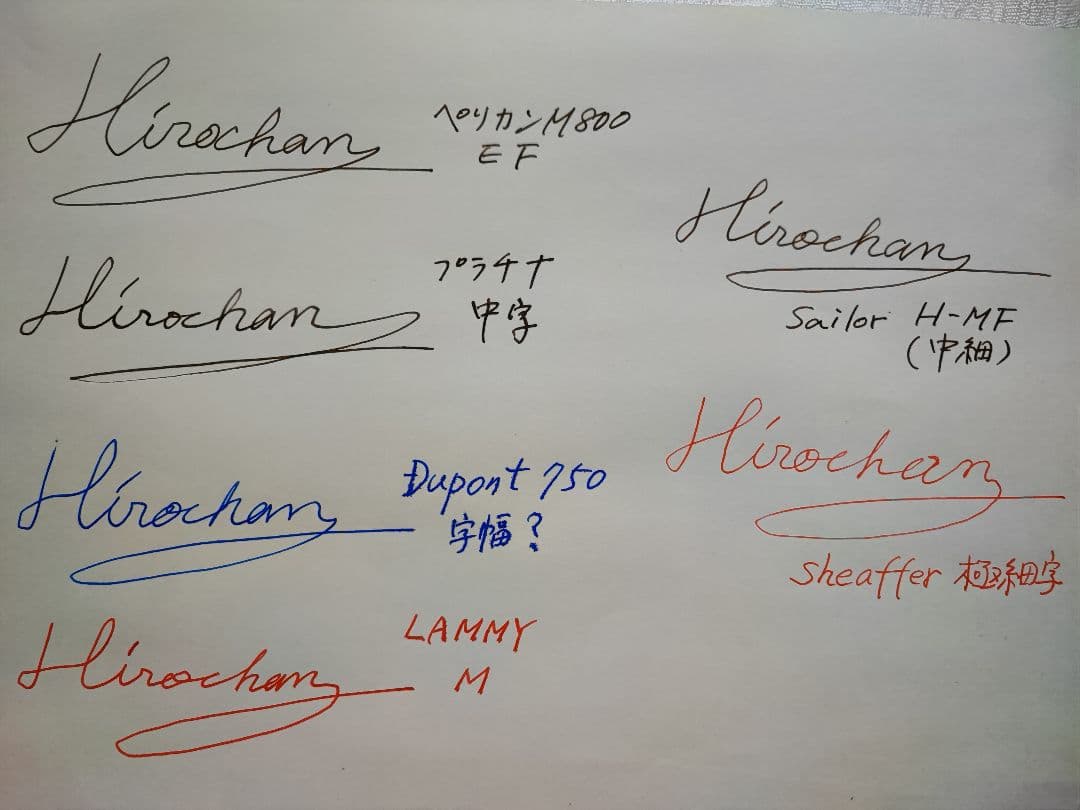 Hirochan
ペリカンM800
EF
Hirochan
プラチナ
中字
Hirochan
Dupont 750
字幅?
Hirochan
LAMMY
M
Hirochan
Sailor H-MF
(中細)
Hirochan
Sheaffer 極細字